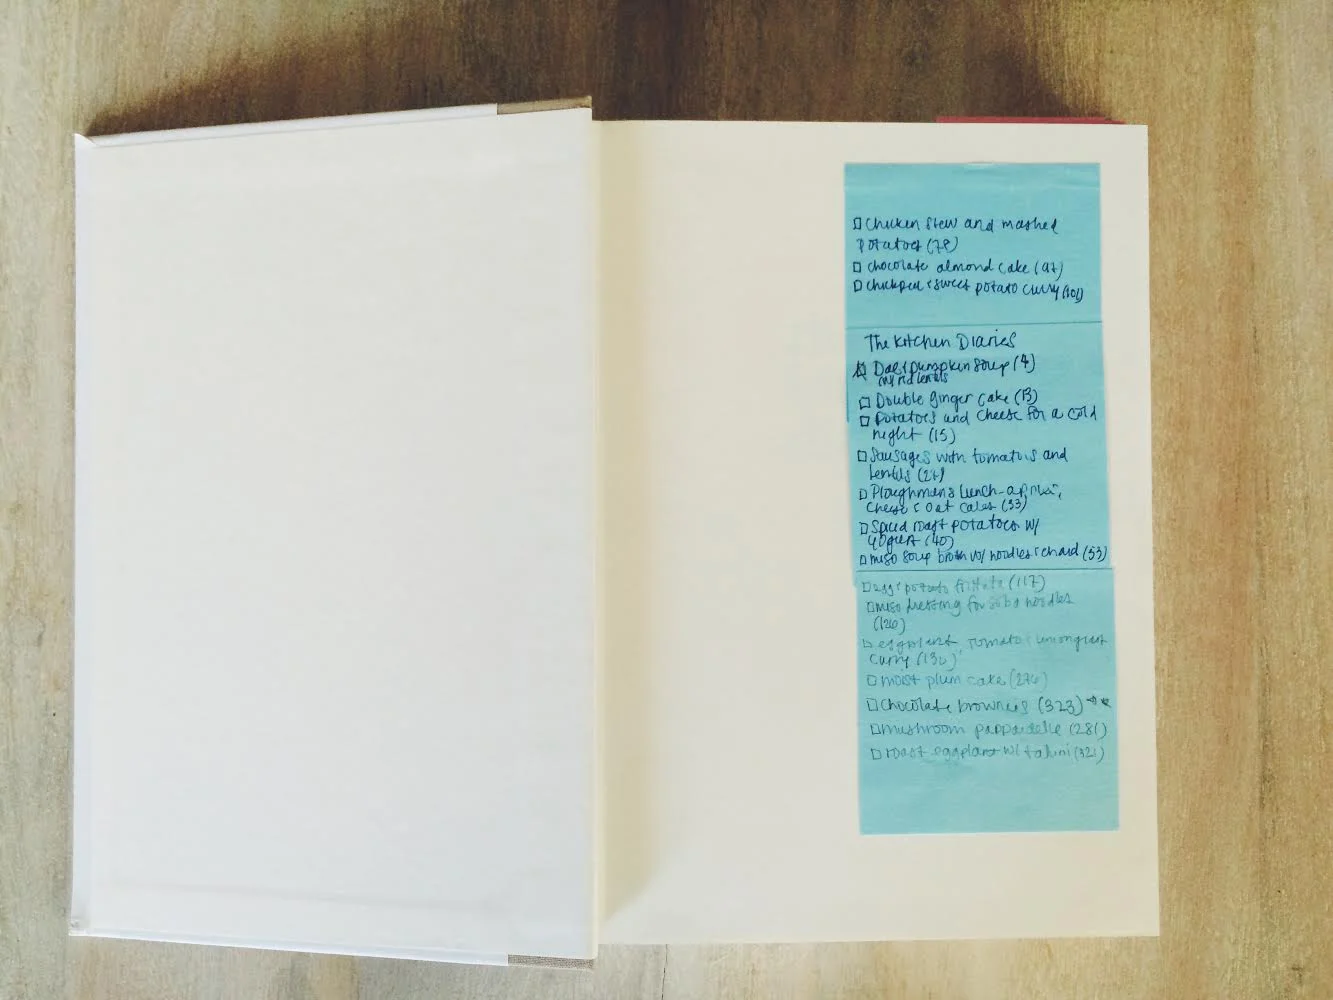 □ Chicken stew and mashed
potatoes (78)
□ chocolate almond cake (97)
□ chickpea & sweet potato curry (101)
The Kitchen Diaries
□ Dal & pumpkin soup (4)
w/ red lentils
□ Double ginger cake (13)
□ Potatoes and cheese for a cold
night (15)
□ Sausages with tomatoes and
lentils (27)
□ Ploughman's lunch - apples,
cheese & oat cakes (33)
□ Spiced roast potatoes w/
yogurt (40)
□ miso soup broth w/ noodles & chard (53)
□ egg & potato frittata (117)
□ miso dressing for soba noodles
(126)
□ eggplant, tomato & lemongrass
curry (130)
□ moist plum cake (276)
□ Chocolate brownies (323)
□ mushroom pappardelle (281)
□ roast eggplant w/ tahini (321)